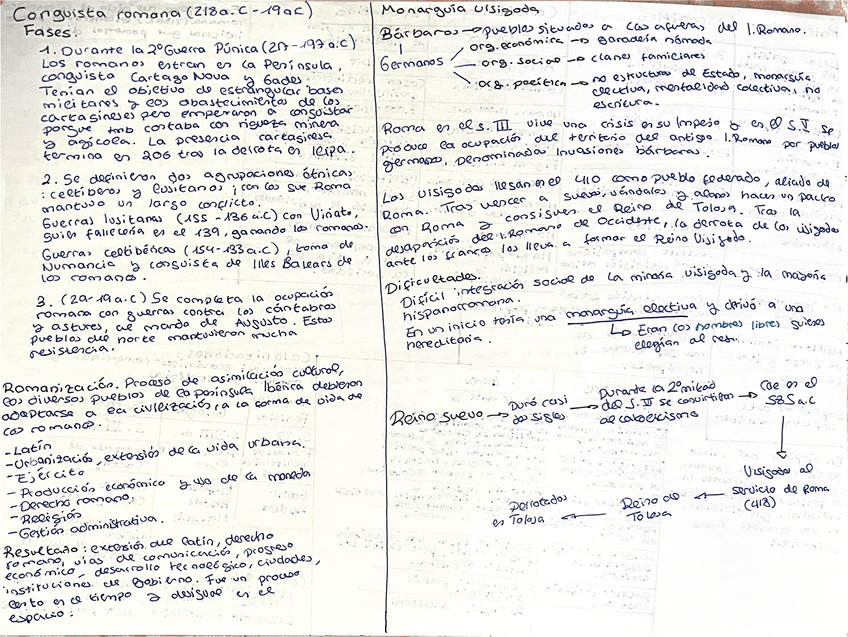 Conquista romana (218 a.C - 19 a.C)
Fases:
1. Durante la 2º Guerra Púnica (217-197 a.C)
Los romanos entran en la Península,
conquista Cartago Nova y Gades.
Tenían el objetivo de estrangular bases
militares y los abastecimientos de los
cartagineses pero empezaron a conquistar
porque tmb contaba con riqueza minera
y agícola. La presencia cartaginesa
termina en 206 tras la derrota en Ilipa.
2. Se definieron dos agrupaciones étnicas
: celtíberos y lusitanos, con los que Roma
mantuvo un largo conflicto.
Guerras lusitanas (155 - 136 a.C) con Viriato,
quien fallecería en el 139, ganando los romanos.
Guerras celtibéricas (154-133 a.C), toma de
Numancia y conquista de Illes Balears de
los romanos.
3. (29-19 a.C) Se completa la ocupación
romana con guerras contra los cántabros
y astures, al mando de Augusto. Estos
pueblos del norte mantuvieron mucha
resistencia.
Romanización. Proceso de asimilación cultural,
los diversos pueblos de la península Ibérica debieron
adaptarse a la civilización, a la forma de vida de
los romanos.
- Latín
- Urbanización, extensión de la vida urbana.
- Ejército
- Producción económico y uso de la moneda
- Derecho romano.
- Religión
- Gestión administrativa.
Resultado: extensión del latín, derecho
romano, vías de comunicación, progreso
económico, desarrollo tecnológico, ciudades,
instituciones de gobierno. Fue un proceso
lento en el tiempo y desigual en el
espacio.
Monarquía visigoda
Bárbaros → pueblos situados a las afueras del I. Romano.
Germanos
org. económica → ganadería nómada
org. social → clanes familiares
org. política → no estructuras de Estado, monarquía
electiva, mentalidad colectiva, no
escritura.
Roma en el s. III vive una crisis en su Imperio y en el s. V se
produce la ocupación del territorio del antiguo I. Romano por pueblos
germanos, denominados invasiones bárbaras.
Los visigodos llegan en el 410 como pueblo federado, aliado de
Roma. Tras vencer a suevos, vándalos y alanos hacen un pacto
con Roma y consiguen el Reino de Tolosa. Tras la
desaparición del I. Romano de Occidente, la derrota de los visigodos
ante los francos los lleva a formar el Reino Visigodo.
Dificultades.
Difícil integración social de la minoría visigoda y la mayoría
hispanorromana.
En un inicio tenía una monarquía electiva y derivó a una
hereditaria.
↳ Eran los hombres libres quienes
elegían al rey.
Reino suevo → Duró casi
dos siglos → Durante la 2º mitad
del s. VI se convirtieron
al catolicismo → Cae en el
585 a.C
↓
Visigodos al
servicio de Roma
(418)
← Reino de
Tolosa
← Derrotados
en Tolosa